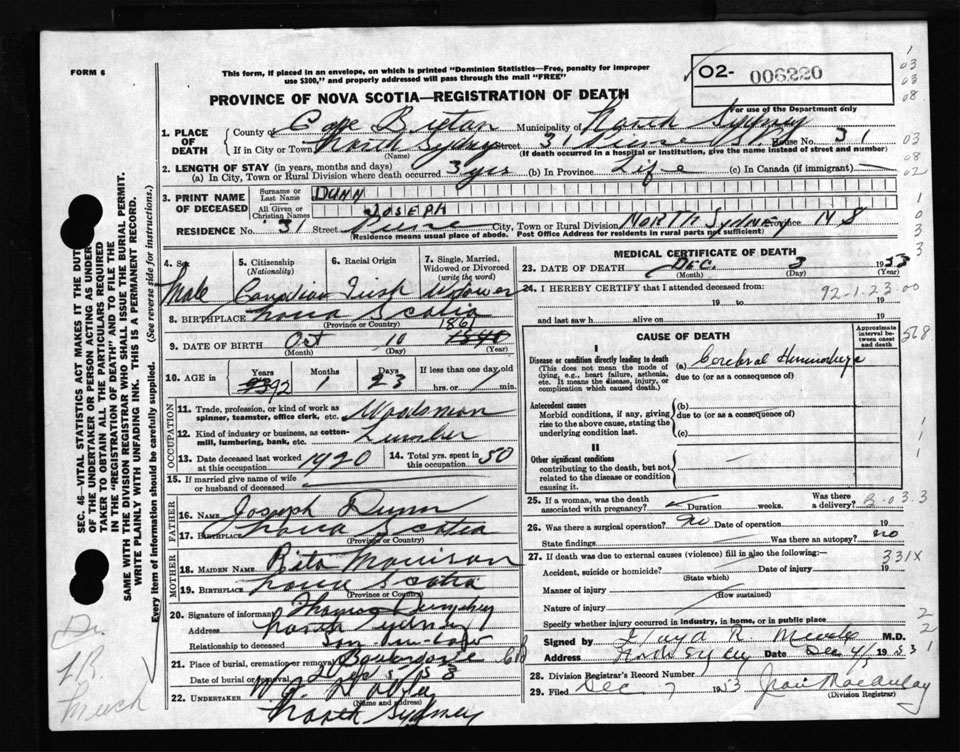 FORM 6
This form, if placed in an envelope, on which is printed "Dominion Statistics—Free, penalty for improper
use $300," and properly addressed will pass through the mail "FREE"
02- 006220
PROVINCE OF NOVA SCOTIA—REGISTRATION OF DEATH
For use of the Department only
1. PLACE OF DEATH
County of Cape Breton Municipality of North Sydney
If in City or Town North Sydney (Name) Street House No. 31
(If death occurred in a hospital or institution, give the name instead of street and number)
2. LENGTH OF STAY (in years, months and days)
(a) In City, Town or Rural Division where death occurred 3 yrs (b) In Province Life (c) In Canada (if immigrant) —
3. PRINT NAME OF DECEASED
Surname or Last Name DUNN
All Given or Christian Names JOSEPH
RESIDENCE No. 31 Street City, Town or Rural Division NORTH SYDNEY Province N S
(Residence means usual place of abode. Post Office Address for residents in rural parts not sufficient)
4. Sex Male
5. Citizenship (Nationality) Canadian
6. Racial Origin Irish
7. Single, Married, Widowed or Divorced (write the word) Widower
8. BIRTHPLACE Nova Scotia
(Province or Country)
9. DATE OF BIRTH Oct 10 1861 1840
(Month) (Day) (Year)
10. AGE in Years 93 92 Months 1 Days 23 If less than one day old hrs. or min.
OCCUPATION
11. Trade, profession, or kind of work as spinner, teamster, office clerk, etc. Woodsman
12. Kind of industry or business, as cotton-mill, lumbering, bank, etc. Lumber
13. Date deceased last worked at this occupation 1920
14. Total yrs. spent in this occupation 50
15. If married give name of wife or husband of deceased
FATHER
16. NAME Joseph Dunn
17. BIRTHPLACE Nova Scotia
(Province or Country)
MOTHER
18. MAIDEN NAME Rita Morrison
19. BIRTHPLACE Nova Scotia
(Province or Country)
20. Signature of informant Thomas Dumphey
Address North Sydney
Relationship to deceased Son-in-law
21. Place of burial, cremation or removal
Date of burial or removal
22. UNDERTAKER
(Name and address)
North Sydney
MEDICAL CERTIFICATE OF DEATH
23. DATE OF DEATH DEC. 3 1953
(Month) (Day) (Year)
24. I HEREBY CERTIFY that I attended deceased from:
92-1-23-00
19 to 19
and last saw h alive on 19
CAUSE OF DEATH
Approximate interval between onset and death
I
Disease or condition directly leading to death
(This does not mean the mode of dying, e.g., heart failure, asthenia, etc. It means the disease, injury, or complication which caused death.)
(a) Cerebral Hemorrhage
due to (or as a consequence of)
Antecedent causes
Morbid conditions, if any, giving rise to the above cause, stating the underlying condition last.
(b)
due to (or as a consequence of)
(c)
II
Other significant conditions
contributing to the death, but not related to the disease or condition causing it.
25. If a woman, was the death associated with pregnancy? Duration weeks. Was there a delivery?
26. Was there a surgical operation? no Date of operation 19
State findings Was there an autopsy? no
27. If death was due to external causes (violence) fill in also the following:—
331X
Accident, suicide or homicide? Date of injury 19
(State which)
Manner of injury
(How sustained)
Nature of injury
Specify whether injury occurred in industry, in home, or in public place
Signed by M.D.
Address North Sydney Date Dec 4, 1953
28. Division Registrar's Record Number
29. Filed Dec 7 1953
(Division Registrar)
SEC. 46—VITAL STATISTICS ACT MAKES IT THE DUTY
OF THE UNDERTAKER OR PERSON ACTING AS UNDER
TAKER TO OBTAIN ALL THE PARTICULARS REQUIRED
IN THE "REGISTRATION OF DEATH" AND TO FILE THE
SAME WITH THE DIVISION REGISTRAR WHO SHALL ISSUE THE BURIAL PERMIT.
WRITE PLAINLY WITH UNFADING INK. THIS IS A PERMANENT RECORD.
Every item of information should be carefully supplied. (See reverse side for instructions.)